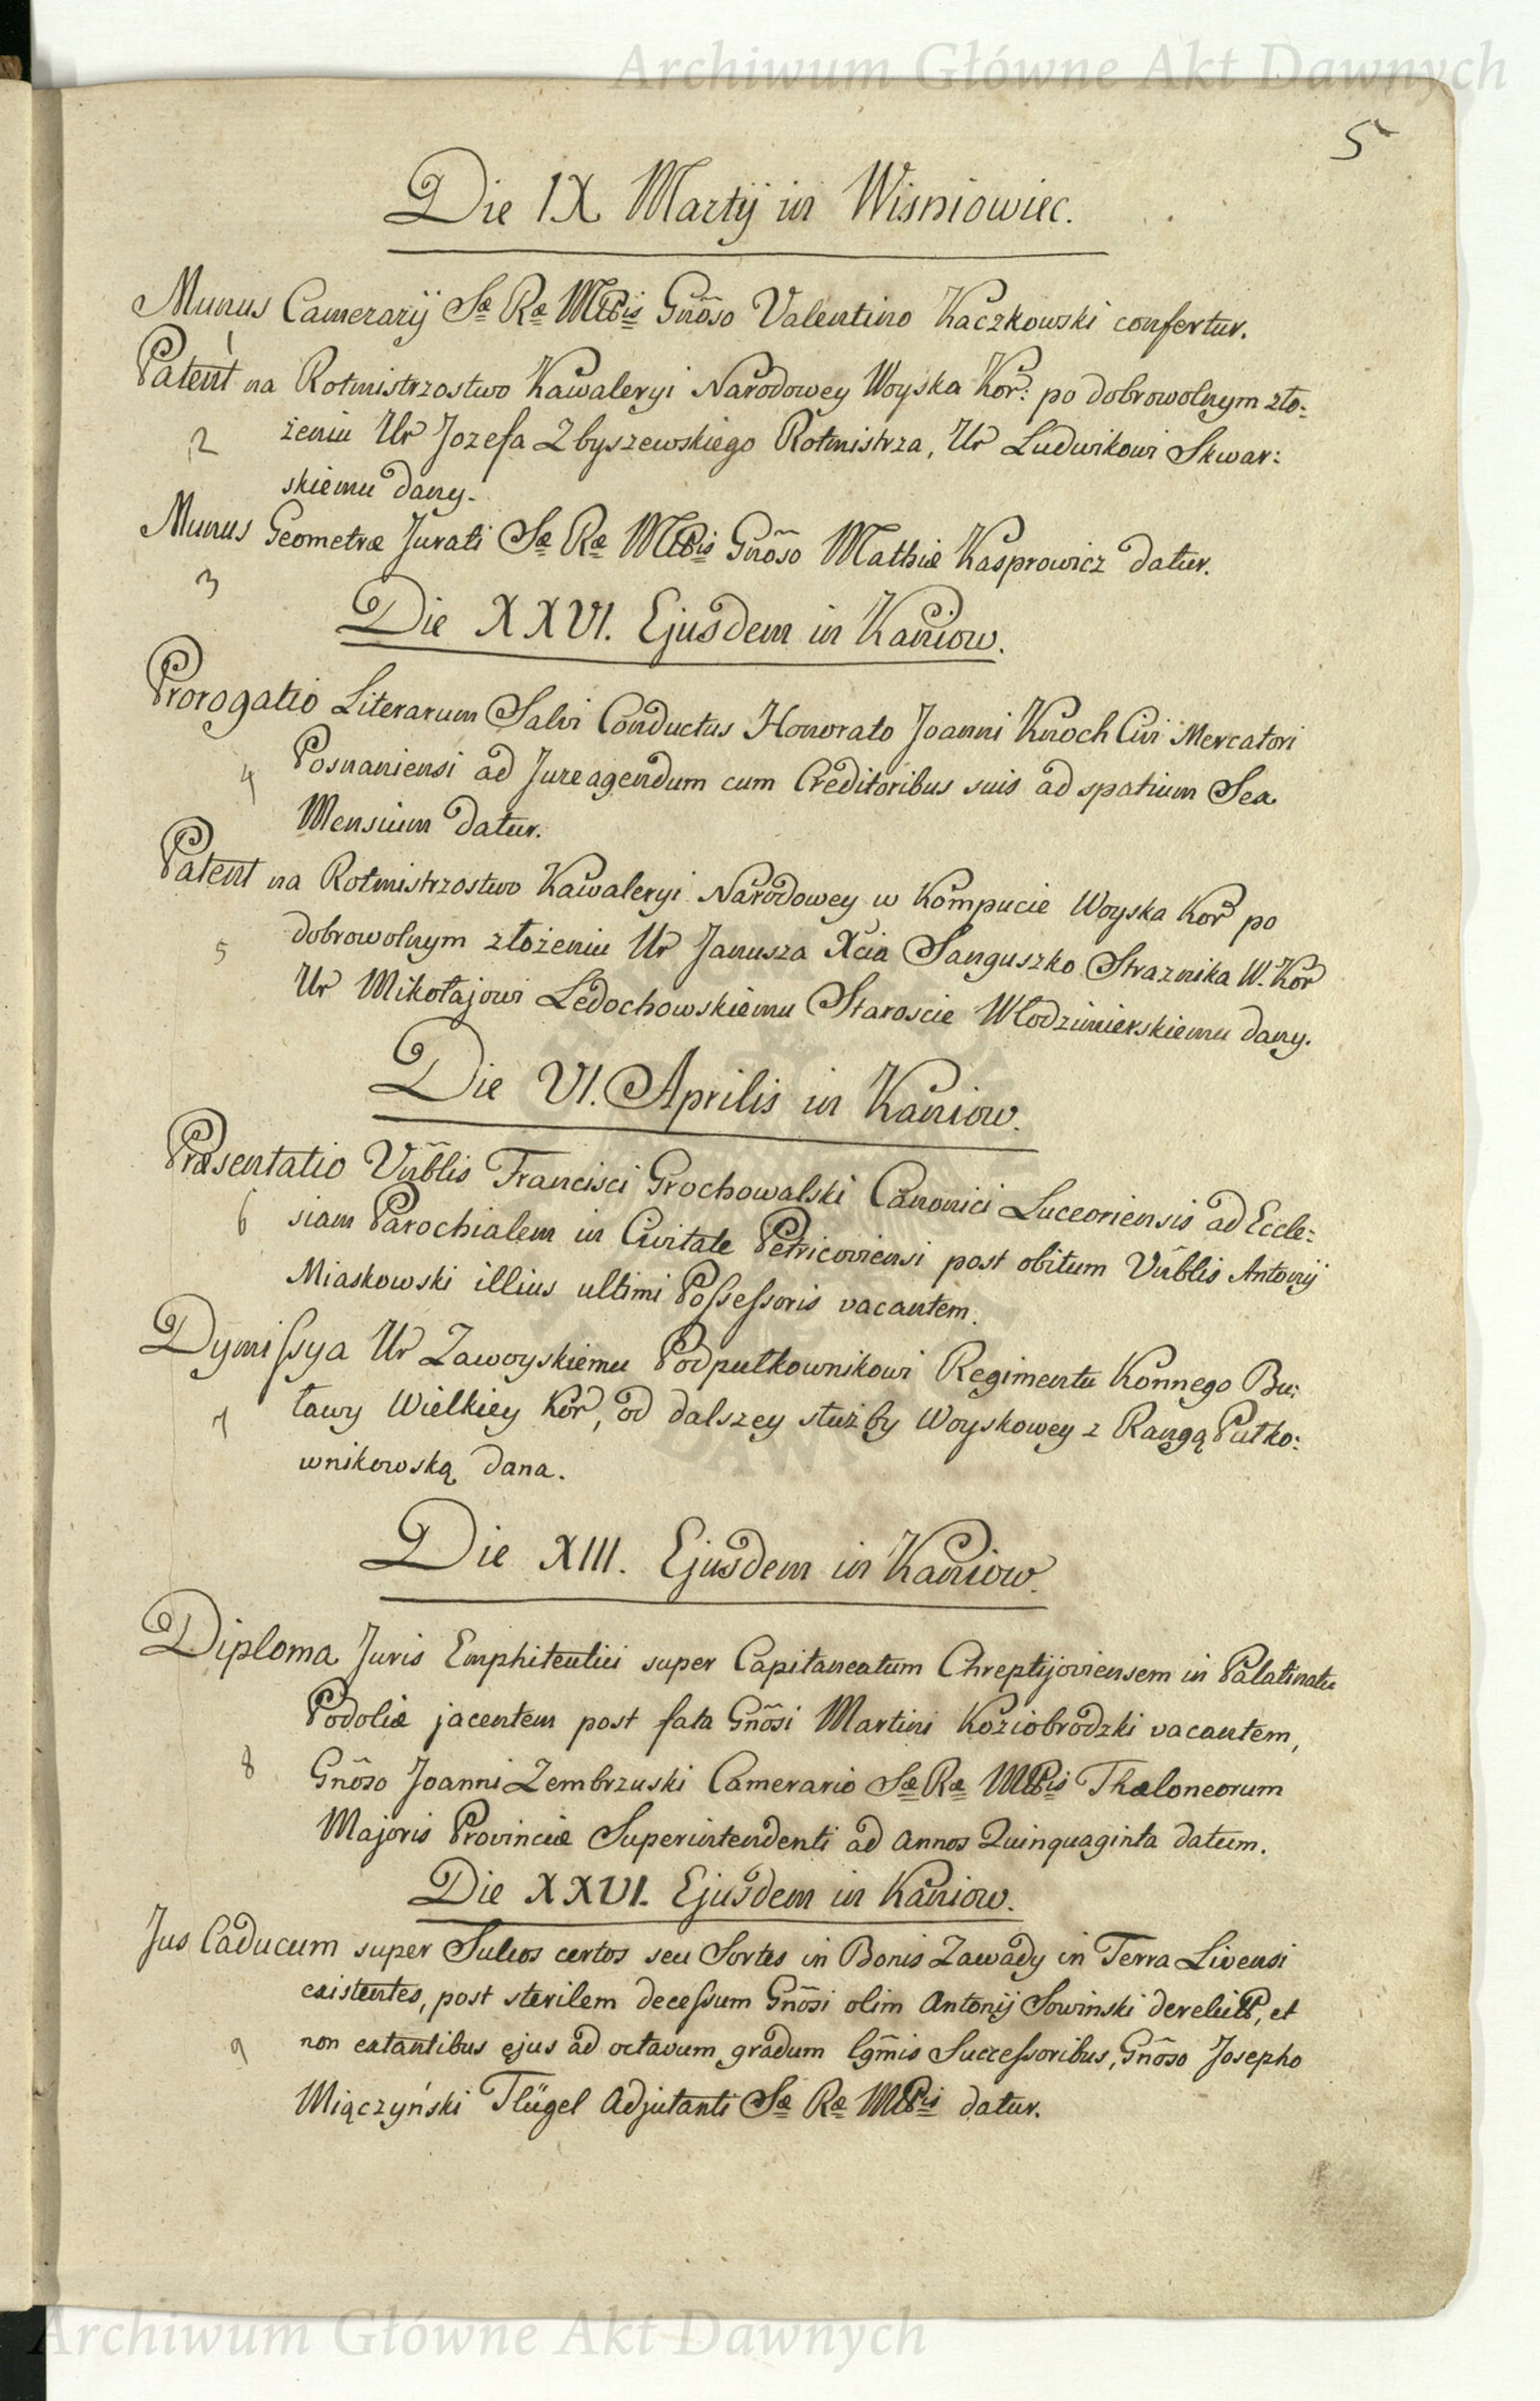 Archiwum Główne Akt Dawnych
5
Die IX Martij in Wisniowiec.
Munus Camerarij Sæ Ræ Mttis Gnõso Valentino Kaczkowski confertur.
1
Patent na Rotmistrzostwo Kawaleryi Narodowey Woyska Kor: po dobrowolnym zło:
2 żeniu Ur Jozefa Zbyszewskiego Rotmistrza, Ur Ludwikowi Skwar:
skiemu dany.
Munus Geometræ Jurati Sæ Ræ Mttis Gnõso Mathiæ Kasprowicz datur.
3
Die XXVI. Ejusdem in Kaniow.
Prorogatio Literarum Salvi Conductus Honorato Joanni Knoch Civi Mercatori
4 Posnaniensi ad Jure agendum cum Creditoribus suis ad spatium Sex
Mensium datur.
Patent na Rotmistrzostwo Kawaleryi Narodowey w Kompucie Woyska Kor po
5 dobrowolnym złożeniu Ur Janusza Xcia Sanguszko Straznika W. Kor
Ur Mikołajowi Ledochowskiemu Staroscie Włodzimierskiemu dany.
Die VI. Aprilis in Kaniow.
Præsentatio Vnb̃lis Francisci Grochowalski Canonici Luceoriensis ad Eccle:
6 siam Parochialem in Civitate Petricoviensi post obitum Vnb̃lis Antonij
Miaskowski illius ultimi Possessoris vacantem.
Dymissya Ur Zawoyskiemu Podpułkownikowi Regimentu Konnego Bu:
7 ławy Wielkiey Kor, od dalszey służby Woyskowey z Rangą Pułko:
wnikowską dana.
Die XIII. Ejusdem in Kaniow.
Diploma Juris Emphiteutici super Capitaneatum Chreptijoviensem in Palatinatu
Podoliæ jacentem post fata Gnõsi Martini Koziobrodzki vacantem,
8 Gnõso Joanni Zembrzuski Camerario Sæ Ræ Mttis Thæloneorum
Majoris Provinciæ Superintendenti ad Annos Quinquaginta datum.
Die XXVI. Ejusdem in Kaniow.
Jus Caducum super Sulcos certos seu Sortes in Bonis Zawady in Terra Livensi
existentes, post sterilem decessum Gnõsi olim Antonij Sowinski derelict, et
9 non extantibus ejus ad octavum gradum lgm̃is Successoribus, Gnõso Josepho
Miączyński Flügel Adjutanti Sæ Ræ Mttis datur.
Archiwum Główne Akt Dawnych